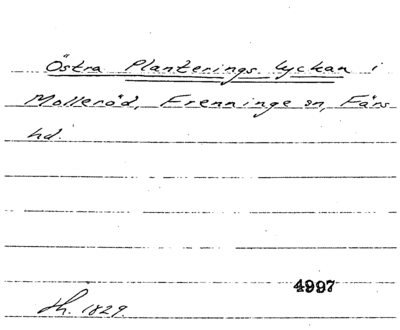 Östra Planterings lyckan i
Molleröd, Frenninge sn, Färs
hd.
4997
Sk. 1829